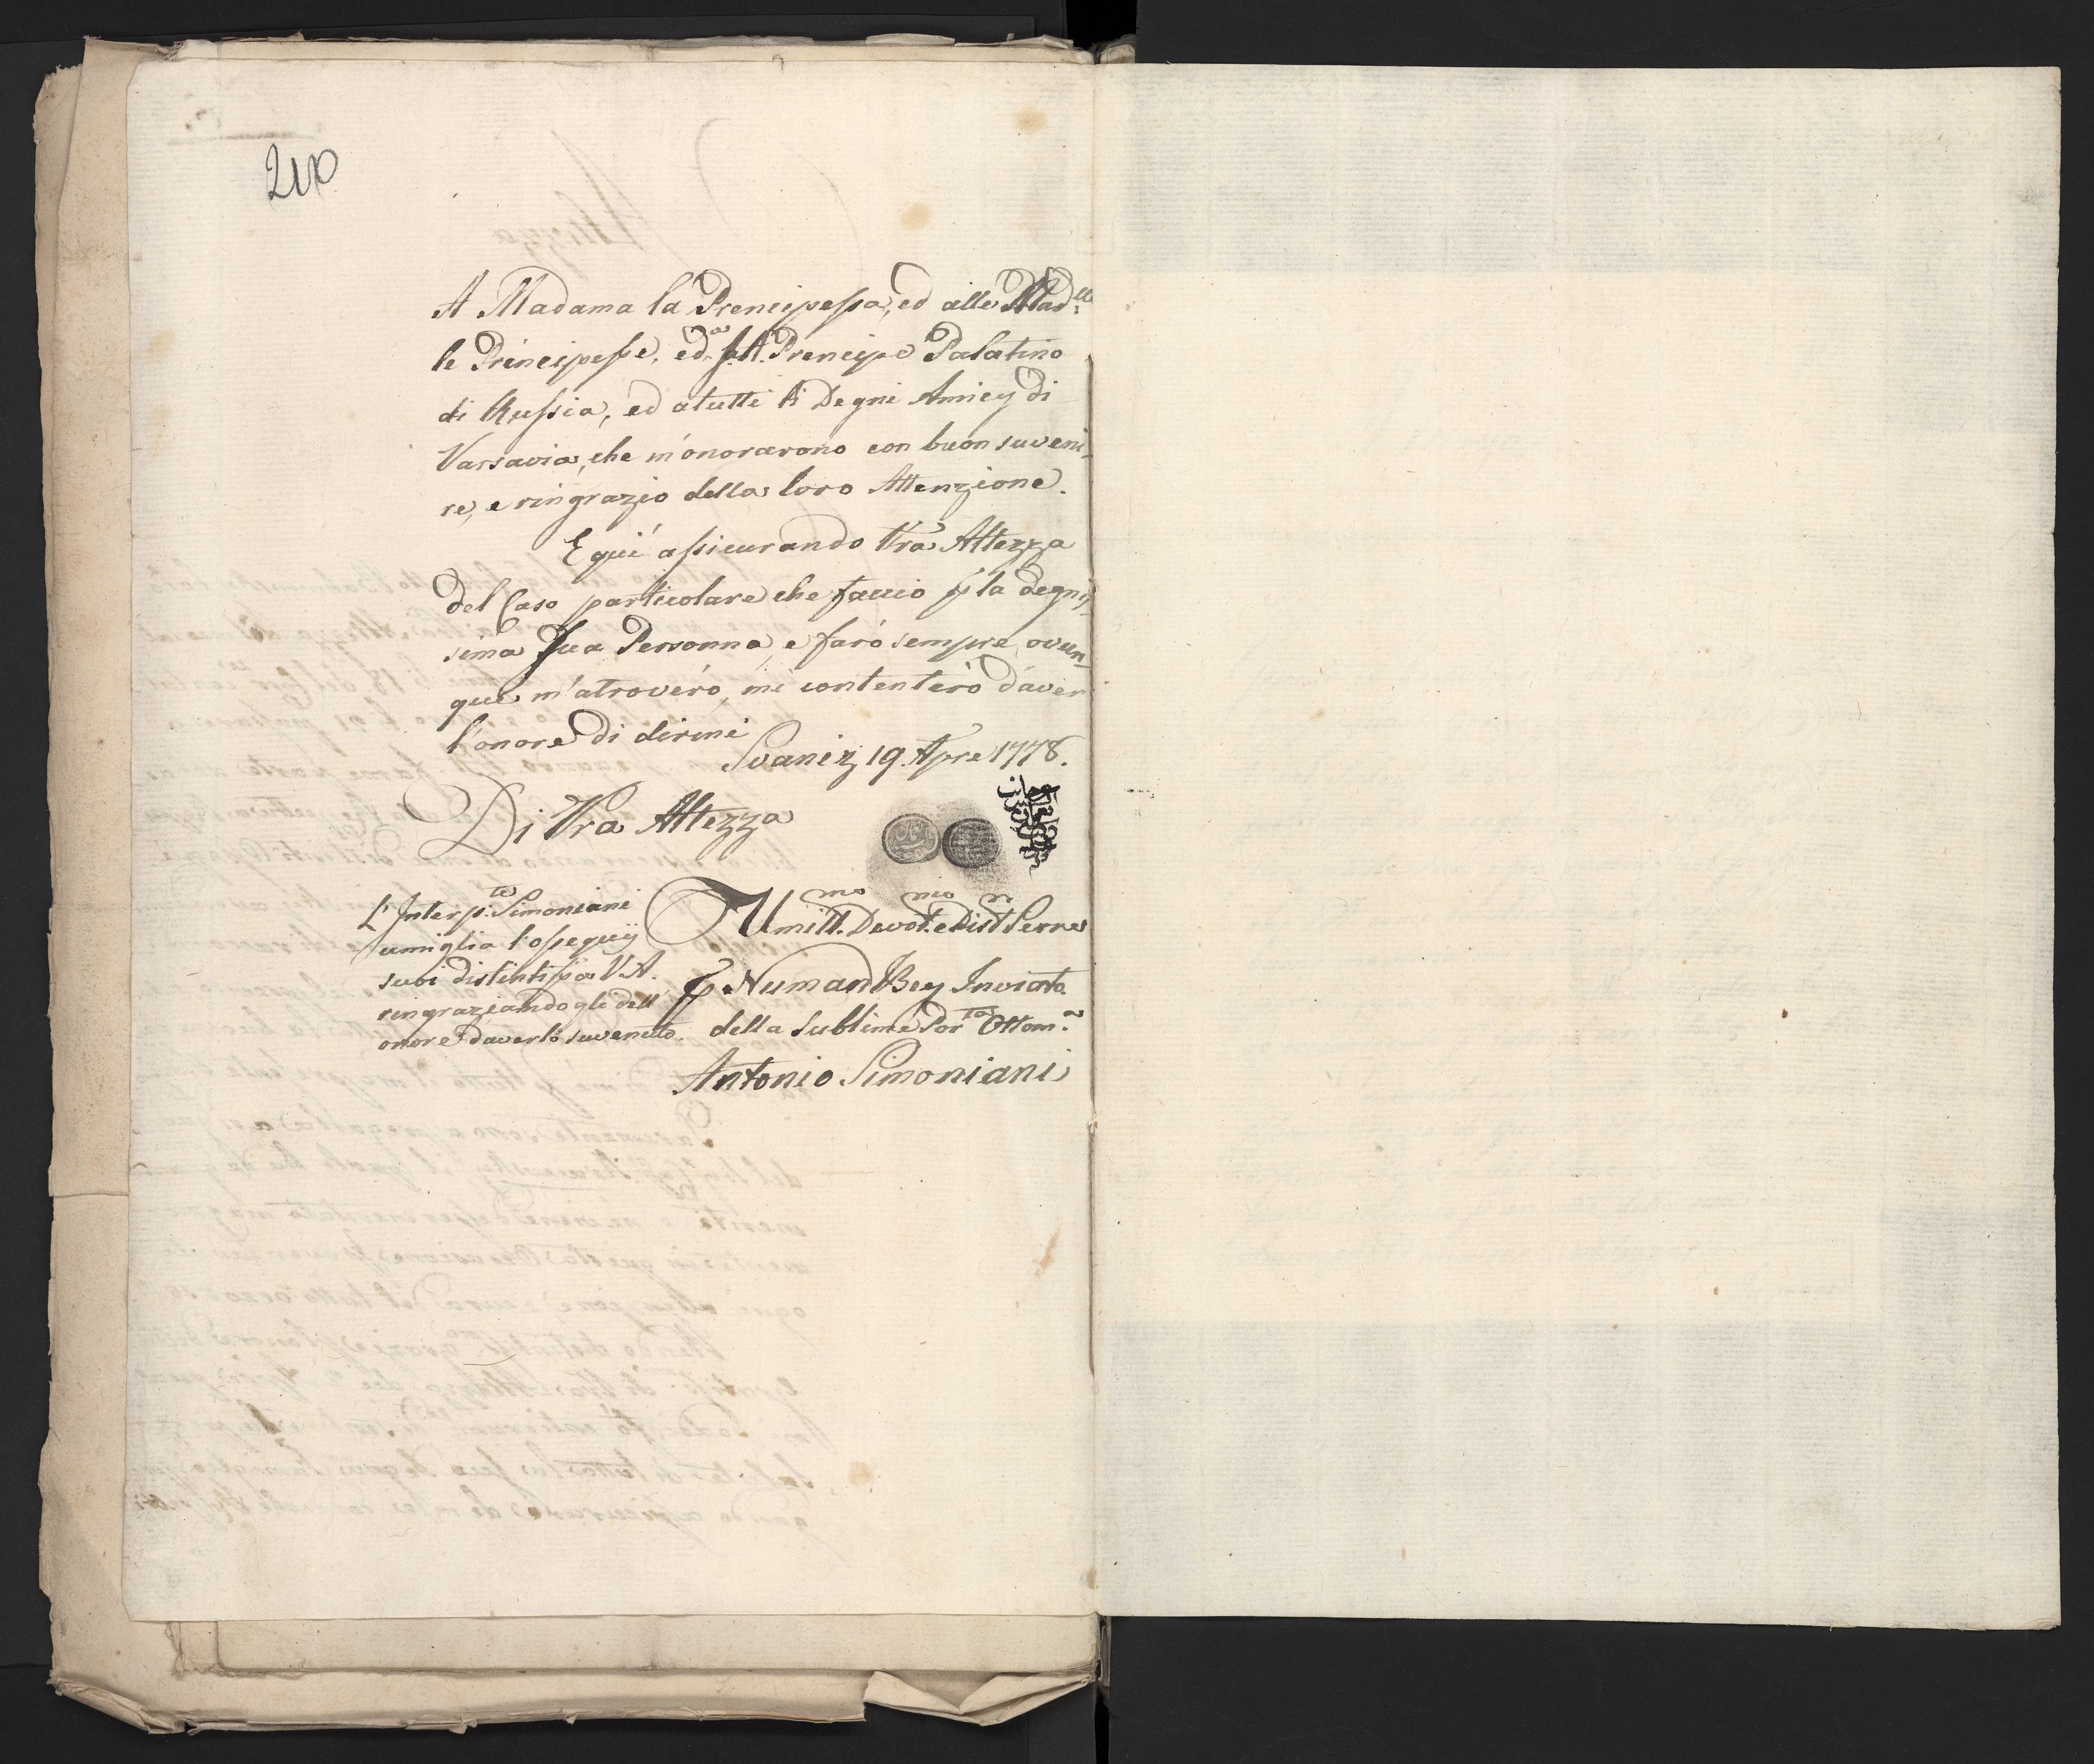 210
A Madama la Prencipessa, ed alle Mad:lle
le Principesse, ed a S.A. Prencipe Palatino
di Russia, ed a tutti li Degni Amicy di
Varsavia, che m'onorarono con buon suveni-
re, e ringrazio della loro Attenzione.
E qui assicurando Vra Altezza
del Caso particolare che faccio p la Degnis-
sima Sua Personna, e farò sempre, ovun-
que m'atroverò, mi contenterò d'aver
l'onore di dirmi
Svaniz 19. Apre 1778.
Di Vra Altezza
Umill.mo Devot.mo e Dist Serre
L'Interp:te Simoniani
umiglia l'ossequij
suoi distintissi a V.A.
ringraziandogli dell'
onore d'averlo suvenuto.
p Numan Bey Inviato
della Sublime Porta Ottom:a
Antonio Simoniani